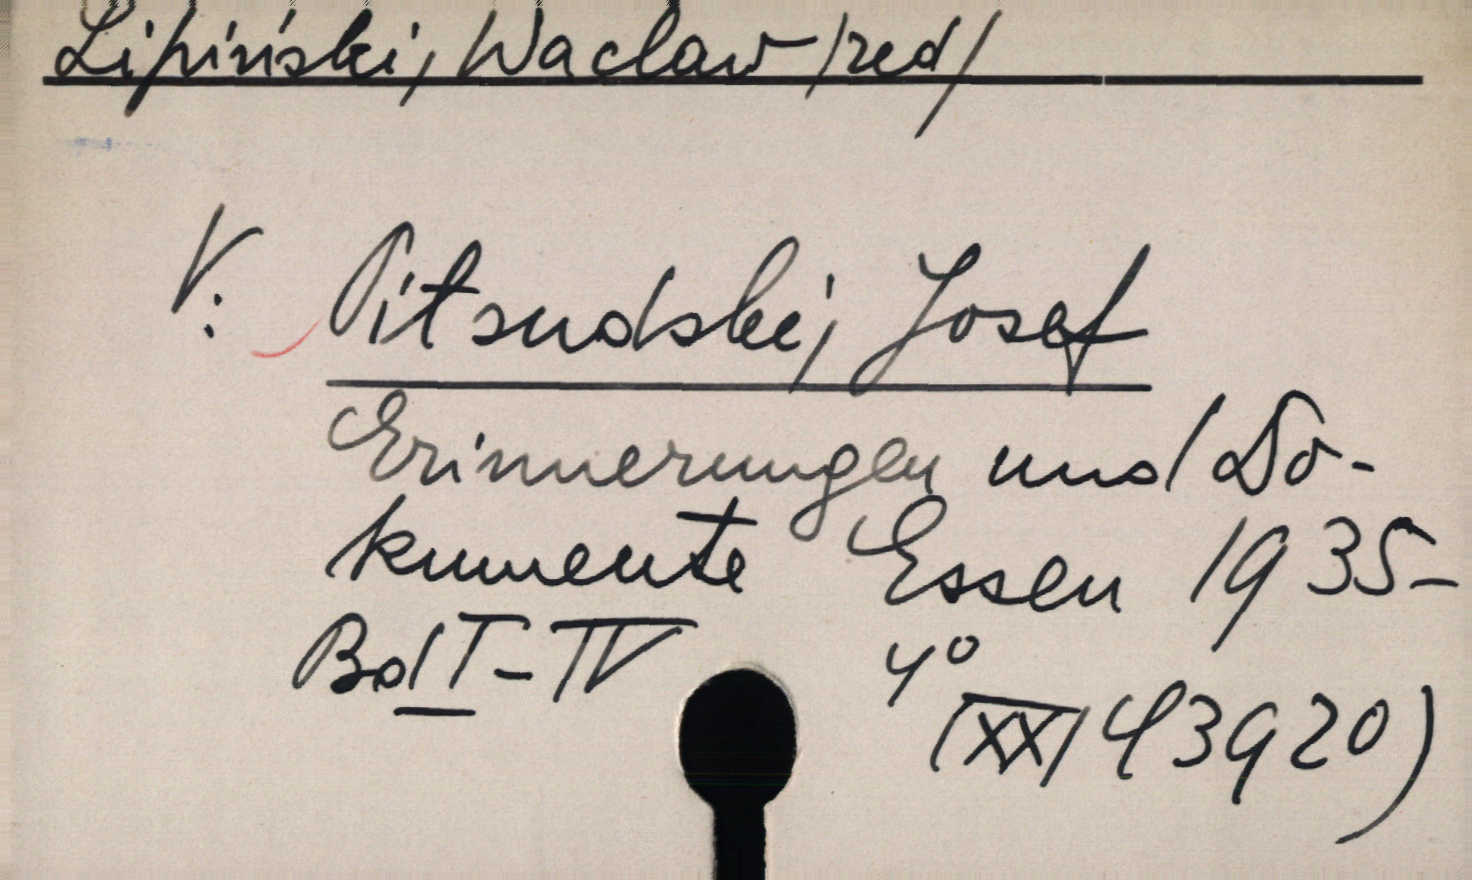 Lipiński, Wacław /red/
V: Piłsudski, Josef
Erinnerungen und Do-
kumente Essen 1935-
Bd I-IV 4°
(XX/43920)